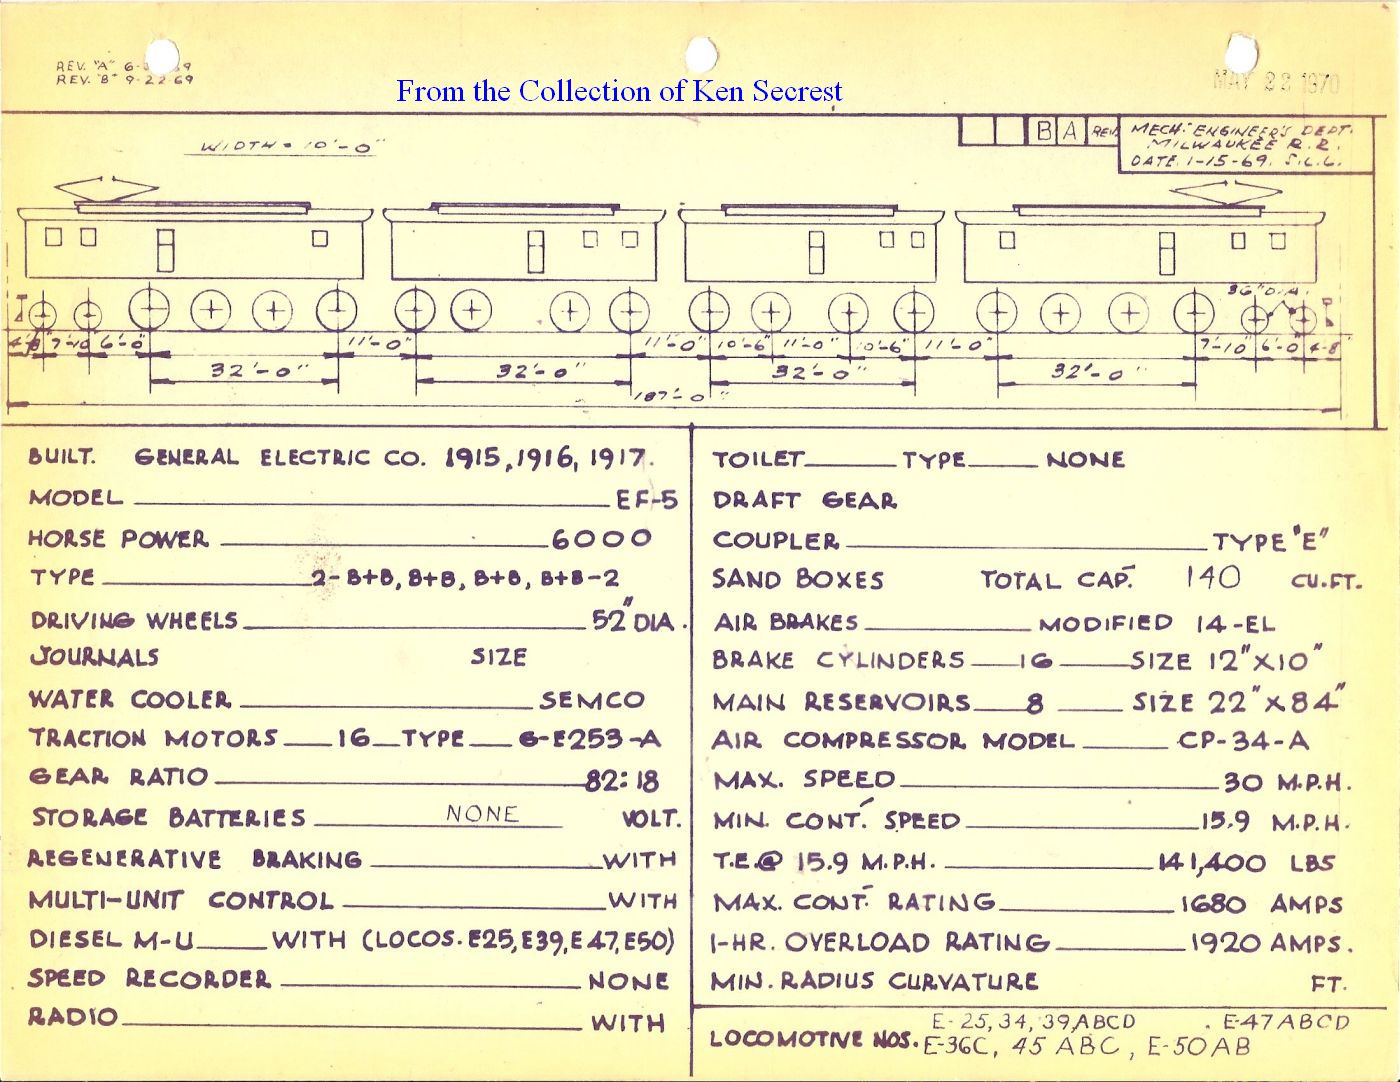 REV. "A" 6- 69
REV. "B" 9-22-69
From the Collection of Ken Secrest
MAY 22 1970
B A REV.
MECH. ENGINEER'S DEPT.
MILWAUKEE R.R.
DATE. 1-15-69. S.L.L.
WIDTH = 10'-0"
36" DIA.
4'-8" 7'-10" 6'-0" 11'-0" 11'-0" 10'-6" 11'-0" 10'-6" 11'-0" 7'-10" 6'-0" 4'-8"
32'-0" 32'-0" 32'-0" 32'-0"
187'-0"
BUILT. GENERAL ELECTRIC CO. 1915, 1916, 1917.
MODEL EF-5
HORSE POWER 6000
TYPE 2-B+B, B+B, B+B, B+B-2
DRIVING WHEELS 52" DIA.
JOURNALS SIZE
WATER COOLER SEMCO
TRACTION MOTORS 16 TYPE G-E253-A
GEAR RATIO 82:18
STORAGE BATTERIES NONE VOLT.
REGENERATIVE BRAKING WITH
MULTI-UNIT CONTROL WITH
DIESEL M-U WITH (LOCOS. E25, E39, E47, E50)
SPEED RECORDER NONE
RADIO WITH
TOILET TYPE NONE
DRAFT GEAR
COUPLER TYPE "E"
SAND BOXES TOTAL CAP. 140 CU.FT.
AIR BRAKES MODIFIED 14-EL
BRAKE CYLINDERS 16 SIZE 12"X10"
MAIN RESERVOIRS 8 SIZE 22"X84"
AIR COMPRESSOR MODEL CP-34-A
MAX. SPEED 30 M.P.H.
MIN. CONT. SPEED 15.9 M.P.H.
T.E.@ 15.9 M.P.H. 141,400 LBS
MAX. CONT. RATING 1680 AMPS
1-HR. OVERLOAD RATING 1920 AMPS.
MIN. RADIUS CURVATURE FT.
LOCOMOTIVE NOS. E-25, 34, 39, ABCD . E-47ABCD
E-36C, 45 ABC, E-50AB